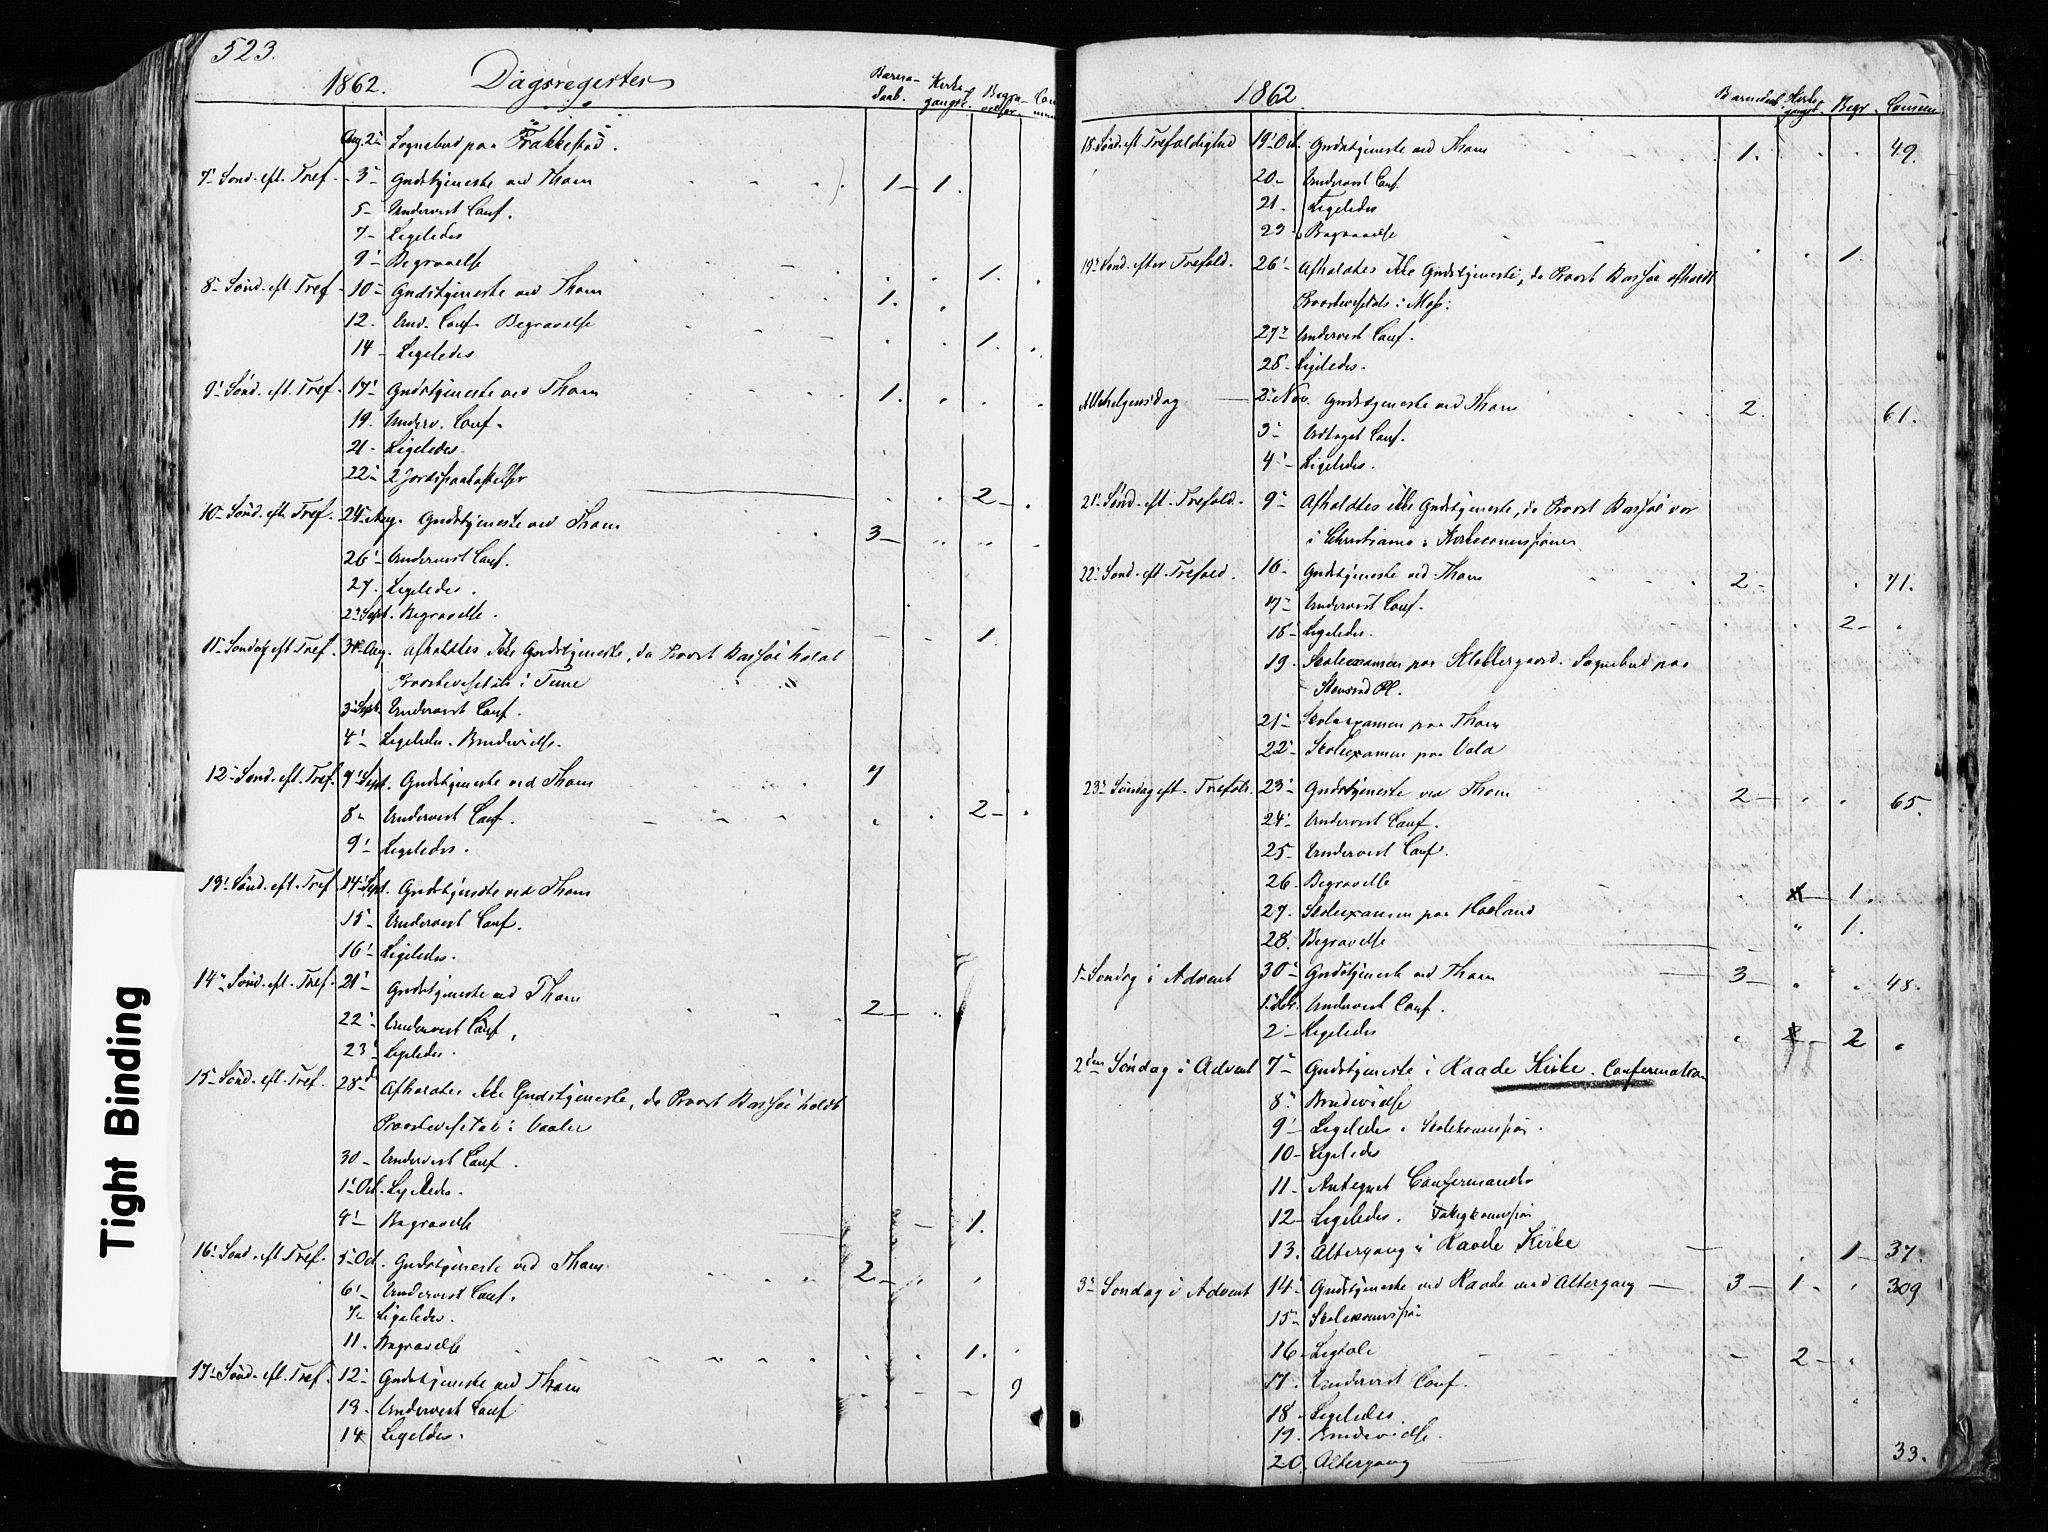 523.
1862. Dagsregister Barne- Kirke- Begra- Com
daab. gangsk. velser. mun
Aug. 2 Sognebud paa Frakkestad.
7 Sønd. eft. Tref. 3 Gudstjeneste ved Thom 1 - 1.
5 Undervist Conf.
7 Ligeledes
9 Begravelse 1.
8 Sønd. eft. Tref 10 Gudstjeneste ved Thom 1.
12. Und. Conf. Begravelse 1.
14 Ligeledes
9 Sønd. eft. Tref. 17 Gudstjeneste ved Thom 1.
19. Underv. Conf.
21 Ligeledes.
22 2 Jordspaakastelser 2
10 Sønd. eft. Tref. 24 Aug. Gudstjeneste ved Thom 3
26 Undervist Conf.
27. Ligeledes.
2 Sept. Begravelse. 1.
11 Søndag eft Tref. 31 Aug. afholdtes ikke Gudstjeneste, da Provst Bassøe holdt
Provstevisitats i Tune
3 Sept. Undervist Conf.
4 Ligeledes. Brudevielse.
12 Sønd. eft. Tref. 7 Sept. Gudstjeneste ved Thom 7
8 Undervist Conf. 2
9 Ligeledes.
13 Sønd. eft. Tref. 14 Sept. Gudstjeneste ved Thom
15 Undervist Conf.
16 Ligeledes.
14 Sønd. eft. Tref. 21 Gudstjeneste ved Thom 2
22 Undervist Conf.
23 Ligeledes.
15 Sønd. eft. Tref. 28 Afholdtes ikke Gudstjeneste, da Provst Bassøe holdt
Provstevisitats i Vaaler
30 Undervist Conf.
1 Oct. Ligeledes.
4 Begravelse 1.
16 Sønd. eft Tref. 5 Oct. Gudstjeneste ved Thom 2
6 Undervist Conf.
7 Ligeledes.
11. Begravelse 1.
17 Sønd. eft. Tref. 12 Gudstjeneste ved Thom 9
13. Undervist Conf.
14 Ligeledes.
1862 Barnedaab Kirke- Begr. Commu
gangsk.
18 Sønd. eft Trefoldighed 19 Oct. Gudstjeneste ved Thom 1. 49.
20 Undervist Conf.
21. Ligeledes
23 Begravelse 1.
19 Sønd. efter Trefold. 26 Afholdtes ikke Gudstjeneste, da Provst Bassøe afholdt
Provstevisitats i Moss.
27 Undervist Conf.
28 Ligeledes.
Allehelgensdag 2 Nov. Gudstjeneste ved Thom 2. 61.
3 Antaget Conf.
4 Ligeledes.
21 Sønd. eft. Trefold. 9 Afholdtes ikke Gudstjeneste, da Provst Bassøe var
i Christiania i Kirkecommission
22 Sønd. eft. Trefold. 16 Gudstjeneste ved Thom 2 71.
17 Undervist Conf.
18 Ligeledes. 2
19. Skoleexamen paa Klostergaard. Sognebud paa
Stensrød Pl.
21 Skoleexamen paa Thom
22 Skoleexamen paa Vold
23 Søndag eft. Trefold. 23 Gudstjeneste ved Thom 2 65.
24 Undervist Conf.
25 Undervist Conf.
26. Begravelse 1.
27. Skoleexamen paa Haaland 1.
28. Begravelse
1 Søndag i Advent 30 Gudstjeneste ved Thom 3 48.
1 Dec. Undervist Conf.
2 Ligeledes 2
2den Søndag i Advent 7 Gudstjeneste i Raade Kirke. Confirmation
8 Brudevielse
9 Ligeledes. Skolecommission.
10 Ligeledes
11 Antegnet Confirmander
12 Ligeledes. Fattigkommission
13. Altergang i Raade Kirke 1 37.
3 Søndag i Advent 14 Gudstjeneste ved Raade med Altergang 3 1 309
15 Skolecommission
16 Ligtale 2
17. Undervist Conf.
18 Ligeledes
19. Brudevielse.
20. Altergang 33.
Tight Binding